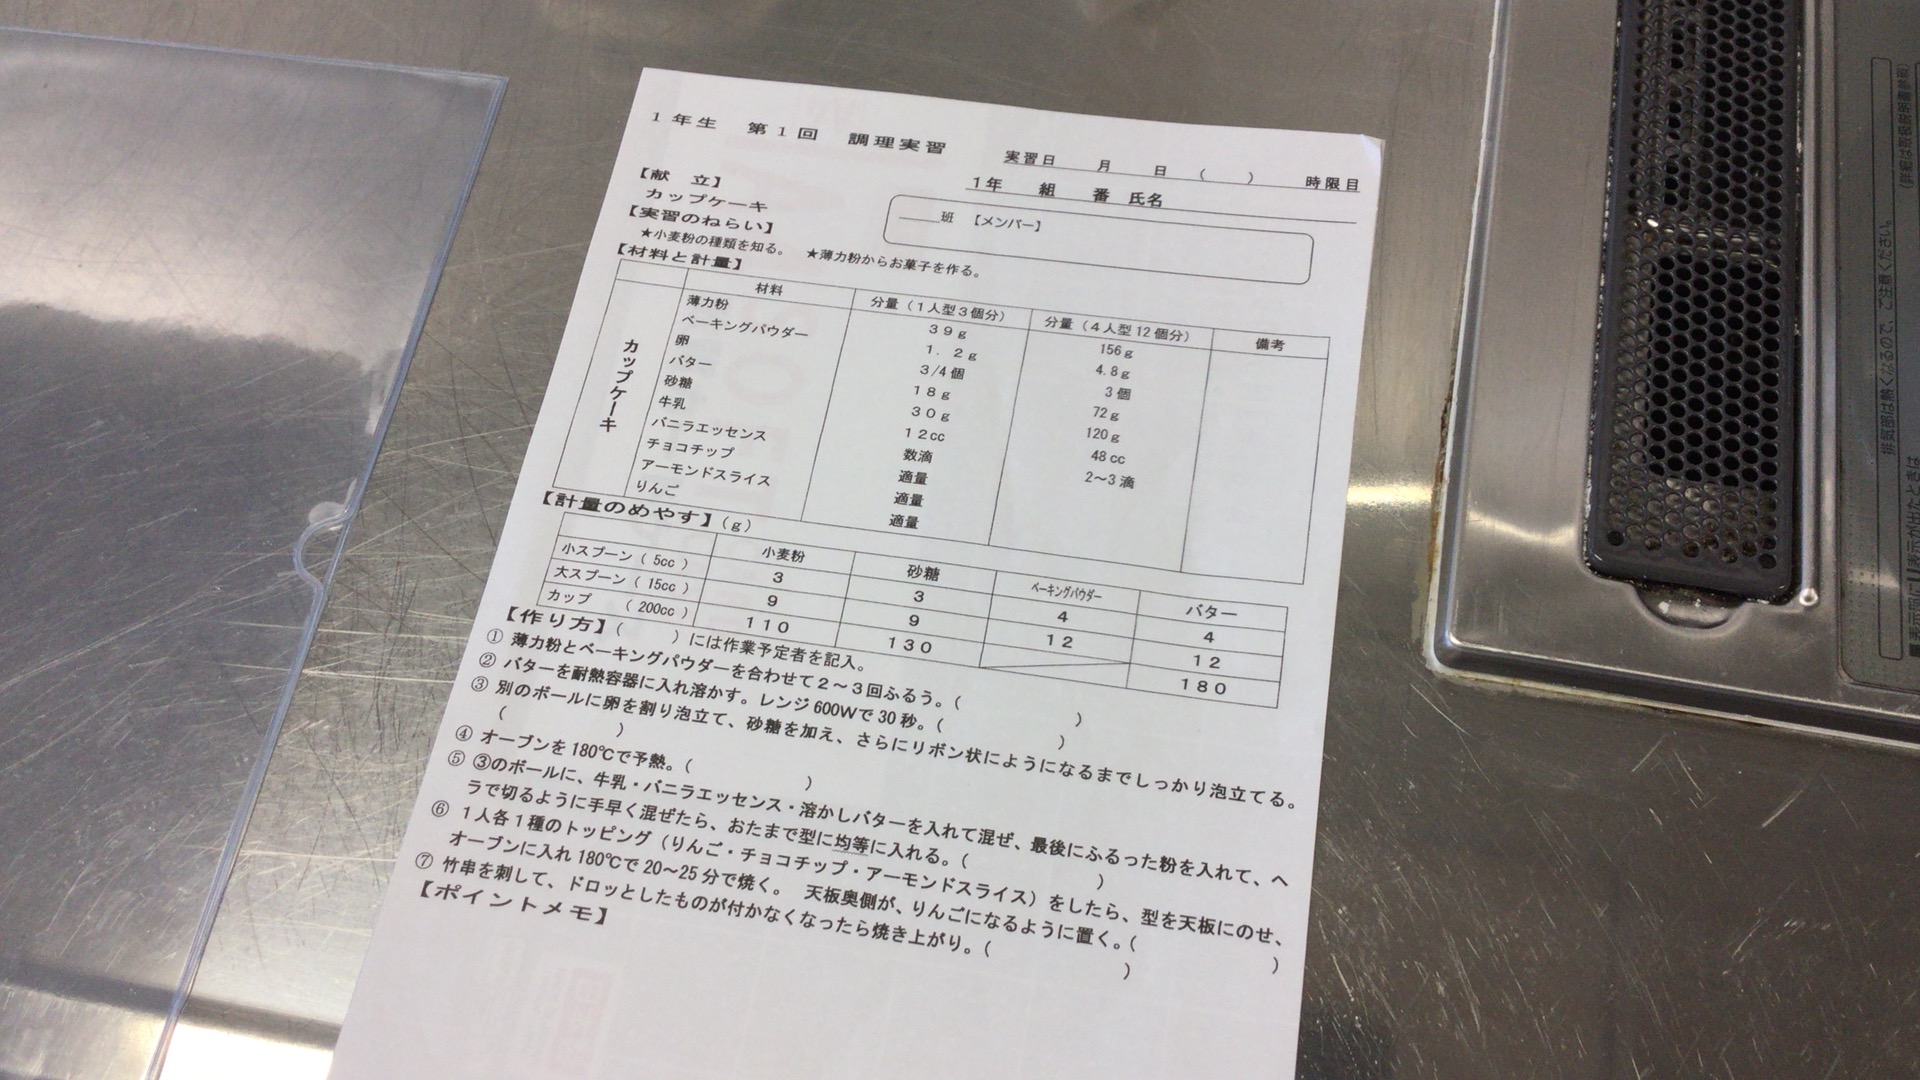 1年生 第1回 調理実習
実習日 月 日 ( ) 時限目
1年 組 番 氏名
【献 立】
カップケーキ
班 【メンバー】
【実習のねらい】
★小麦粉の種類を知る。 ★薄力粉からお菓子を作る。
【材料と計量】
材料 分量(1人型3個分) 分量(4人型12個分) 備考
カップケーキ
薄力粉 39g 156g
ベーキングパウダー 1.2g 4.8g
卵 3/4個 3個
バター 18g 72g
砂糖 30g 120g
牛乳 12cc 48cc
バニラエッセンス 数滴 2~3滴
チョコチップ 適量
アーモンドスライス 適量
りんご 適量
【計量のめやす】(g)
小麦粉 砂糖 ベーキングパウダー バター
小スプーン( 5cc ) 3 3 4 4
大スプーン( 15cc) 9 9 12 12
カップ ( 200cc ) 110 130 180
【作り方】( )には作業予定者を記入。
① 薄力粉とベーキングパウダーを合わせて2~3回ふるう。( )
② バターを耐熱容器に入れ溶かす。レンジ600Wで30秒。( )
③ 別のボールに卵を割り泡立て、砂糖を加え、さらにリボン状にようになるまでしっかり泡立てる。
( )
④ オーブンを180℃で予熱。( )
⑤ ③のボールに、牛乳・バニラエッセンス・溶かしバターを入れて混ぜ、最後にふるった粉を入れて、ヘ
ラで切るように手早く混ぜたら、おたまで型に均等に入れる。( )
⑥ 1人各1種のトッピング(りんご・チョコチップ・アーモンドスライス)をしたら、型を天板にのせ、
オーブンに入れ180℃で20~25分で焼く。 天板奥側が、りんごになるように置く。( )
⑦ 竹串を刺して、ドロッとしたものが付かなくなったら焼き上がり。( )
【ポイントメモ】
排気部は熱くなるので、ご注意ください。